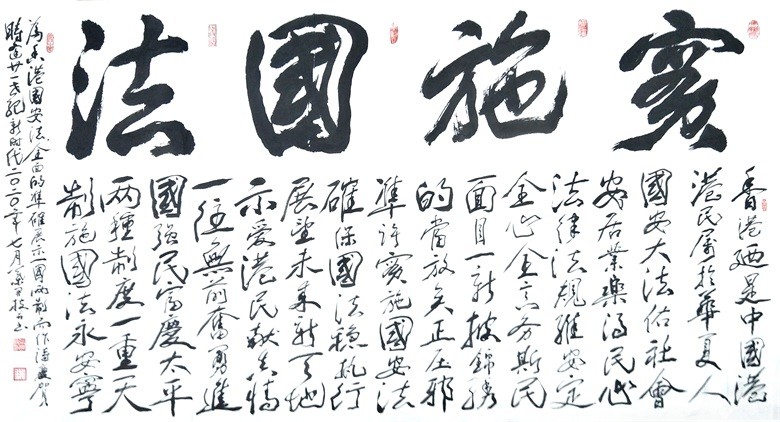 實施國法
香港廼是中國港
港民屬於華夏人
國安大法佑社會
安居業樂得民心
法律法規維安定
全心全意为斯民
面目一新披錦綉
的當放矢正压邪
準許實施國安法
確保國法穩執行
展望未来新天地
示爱港民献真情
一往無前奮勇進
國强民富慶太平
两種制度一重天
制施國法永安寧
為香港國安法全面的準確展示一國两制而作诗賀
時逢廿一世紀新时代二〇二〇年七月書